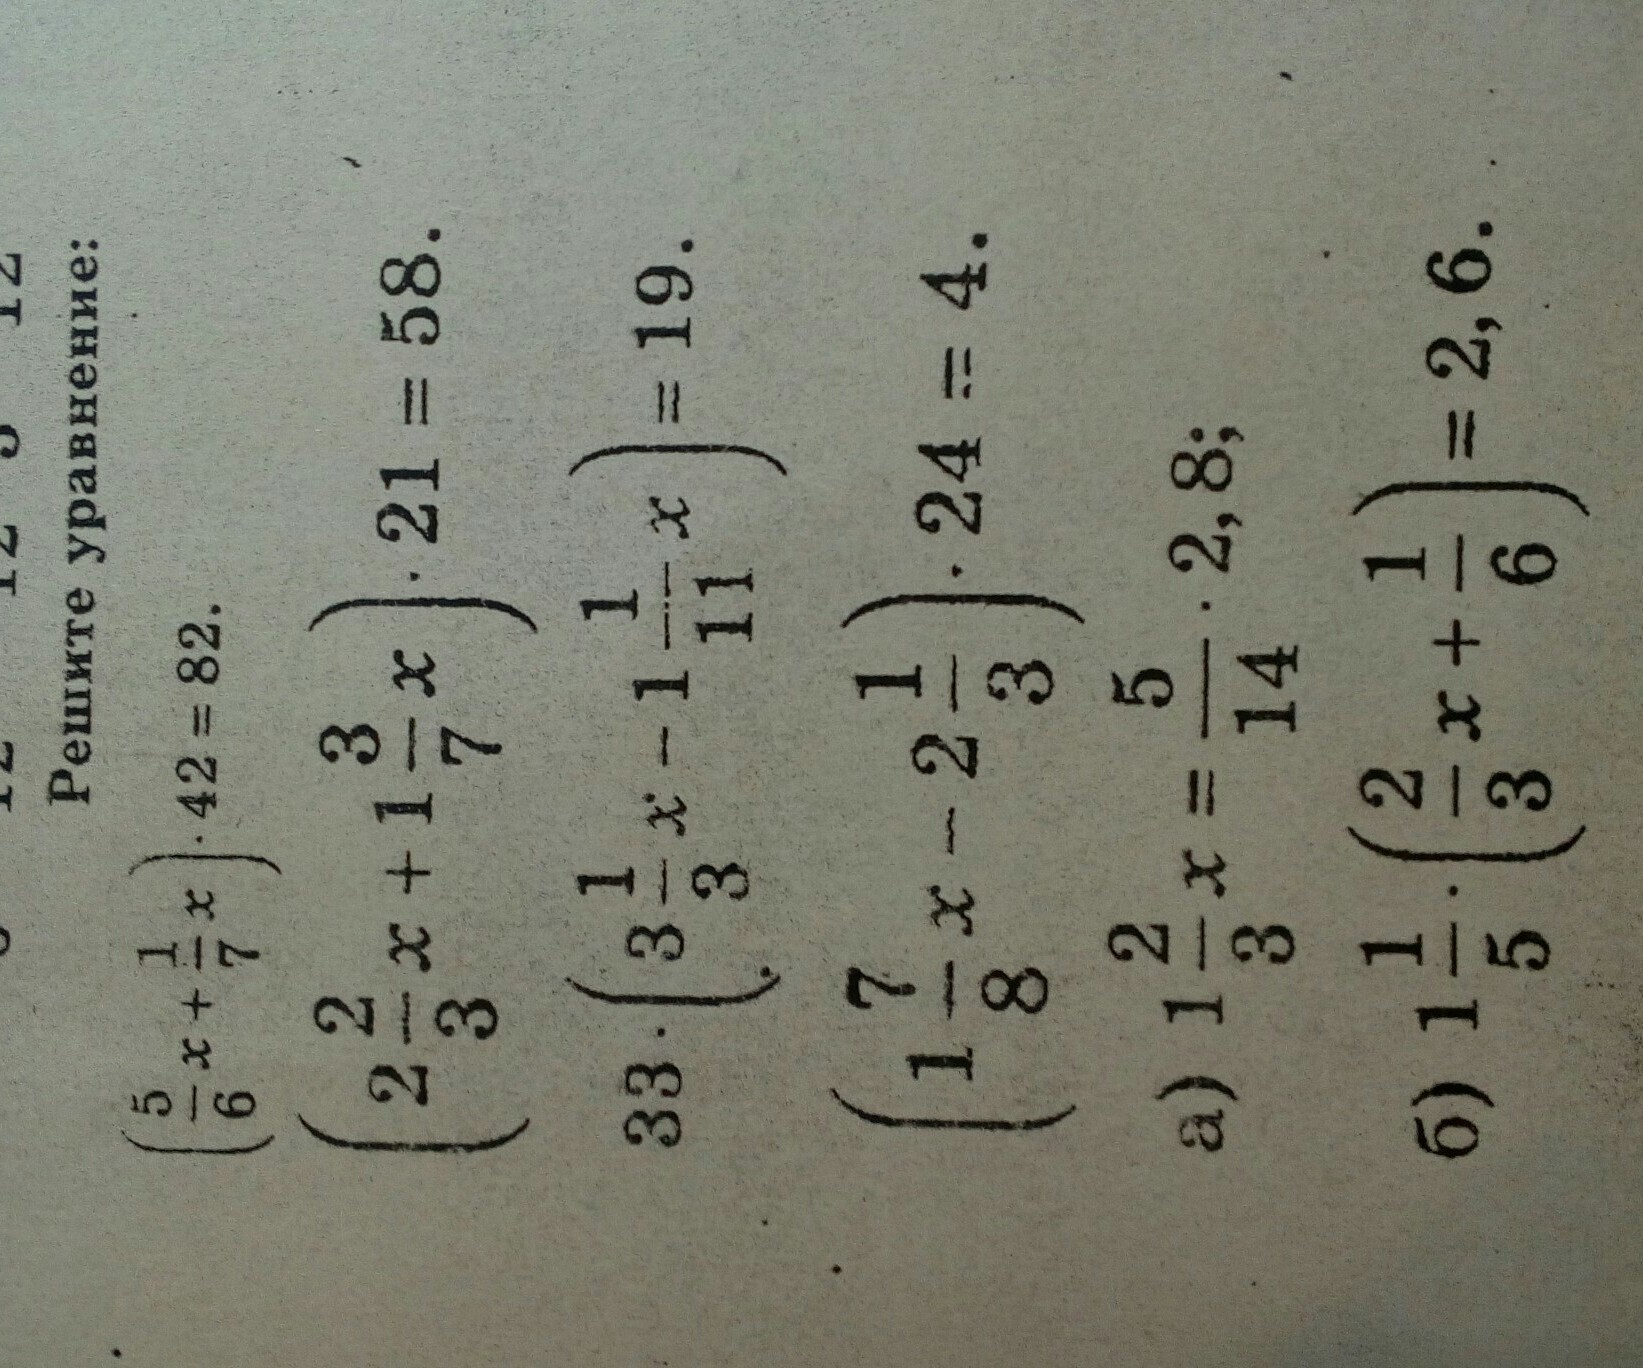 Решите уравнение:
(5/6 x + 1/7 x) · 42 = 82.
(2 2/3 x + 1 3/7 x) · 21 = 58.
33 · (3 1/3 x − 1 1/11 x) = 19.
(1 7/8 x − 2 1/3) · 24 = 4.
а) 1 2/3 x = 5/14 · 2,8;
б) 1 1/5 · (2/3 x + 1/6) = 2,6.